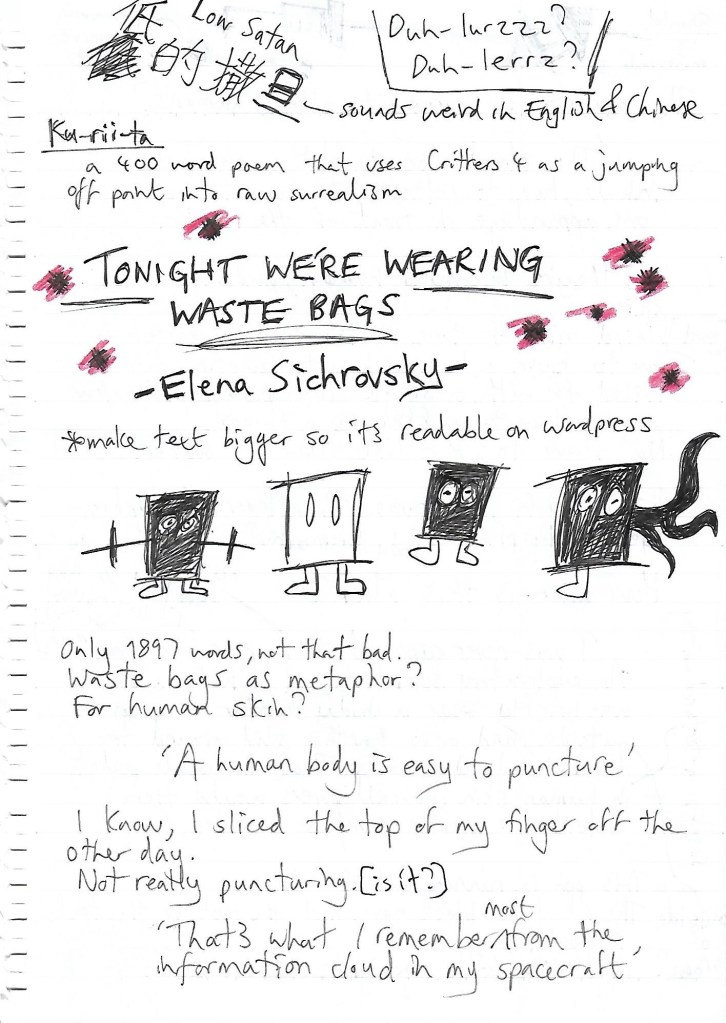 低 Low Satan
的撒旦
Duh-lurzzz?
Duh-lerrz?
sounds weird in English & Chinese
Ku-rii-ta
a 400 word poem that uses Critters 4 as a jumping
off point into raw surrealism
TONIGHT WE'RE WEARING
WASTE BAGS
-Elena Sichrovsky-
*make text bigger so it's readable on wordpress
Only 1897 words, not that bad.
Waste bags as metaphor?
For human skin?
'A human body is easy to puncture'
I know, I sliced the top of my finger off the
other day.
Not really puncturing. [is it?]
'That's what I remember most from the
information cloud in my spacecraft'